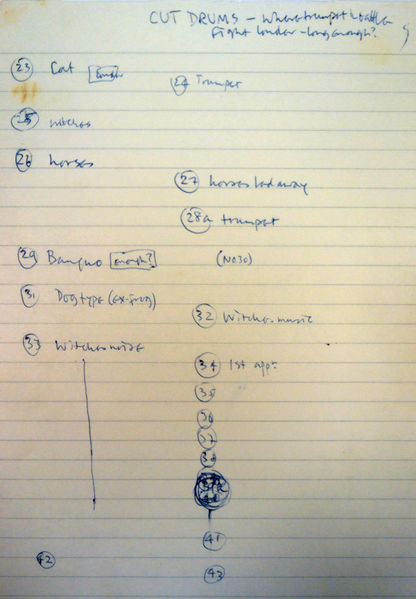 CUT DRUMS - where trumpet & battle
fight louder - long enough?
23 Cat
24 Trumpet
25 witches
26 horses
27 horses lead away
28a trumpet
29 Banquo enough?
(NO 30)
31 Dog type (ex-frog)
32 Witches music
33 Witches noise
34 1st app:
35
36
37
38
41
42
43